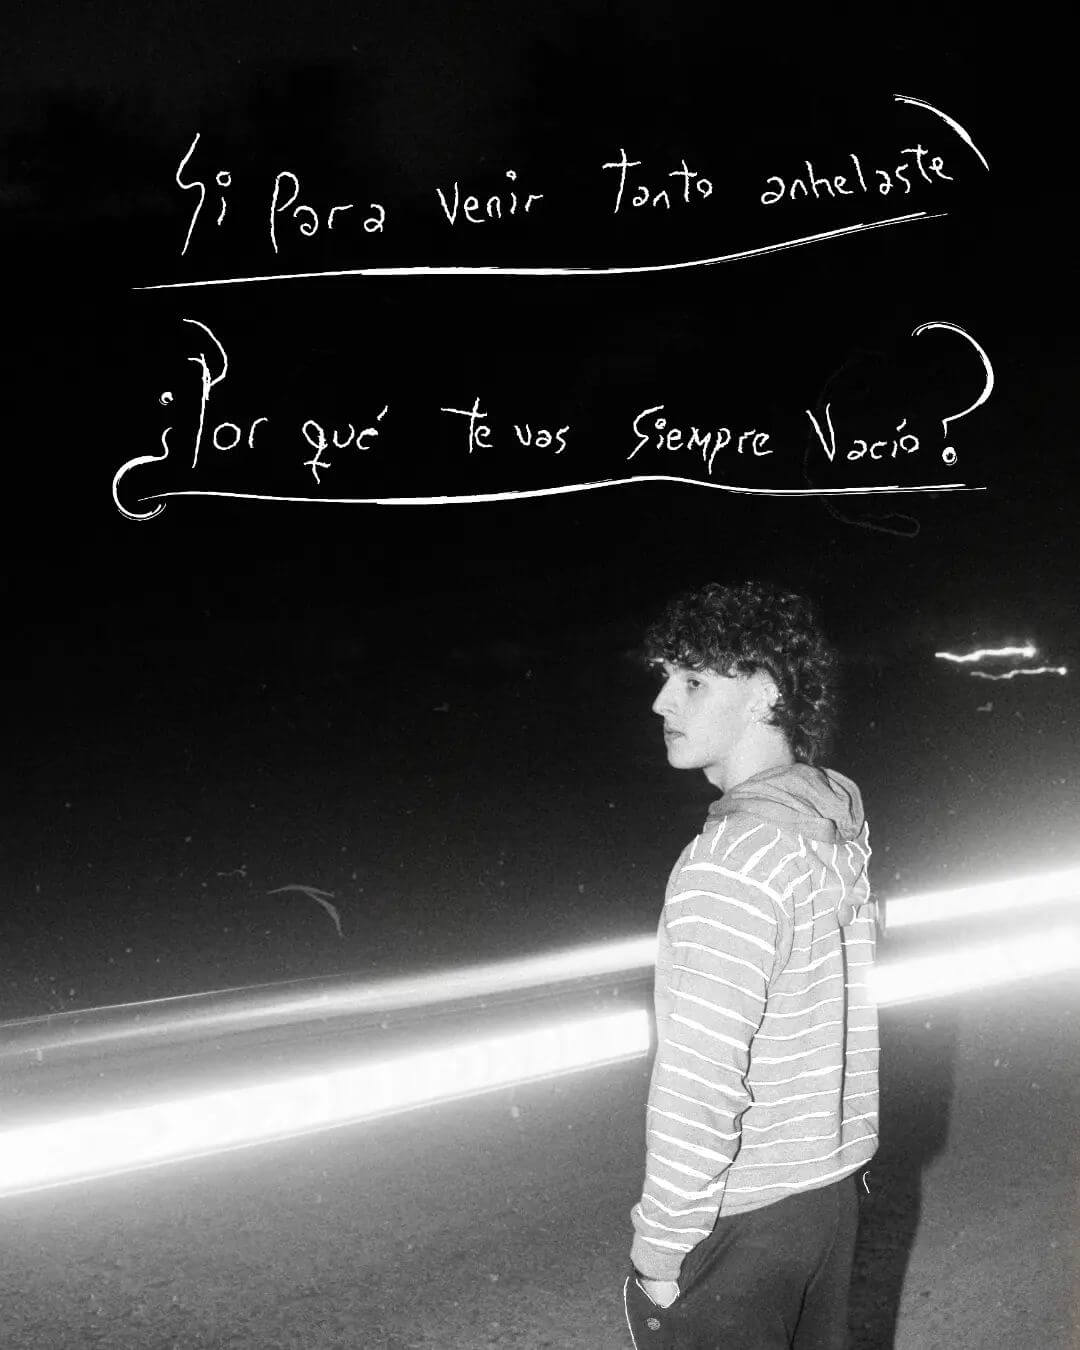 Si para venir tanto anhelaste
¿Por qué te vas siempre vacío?